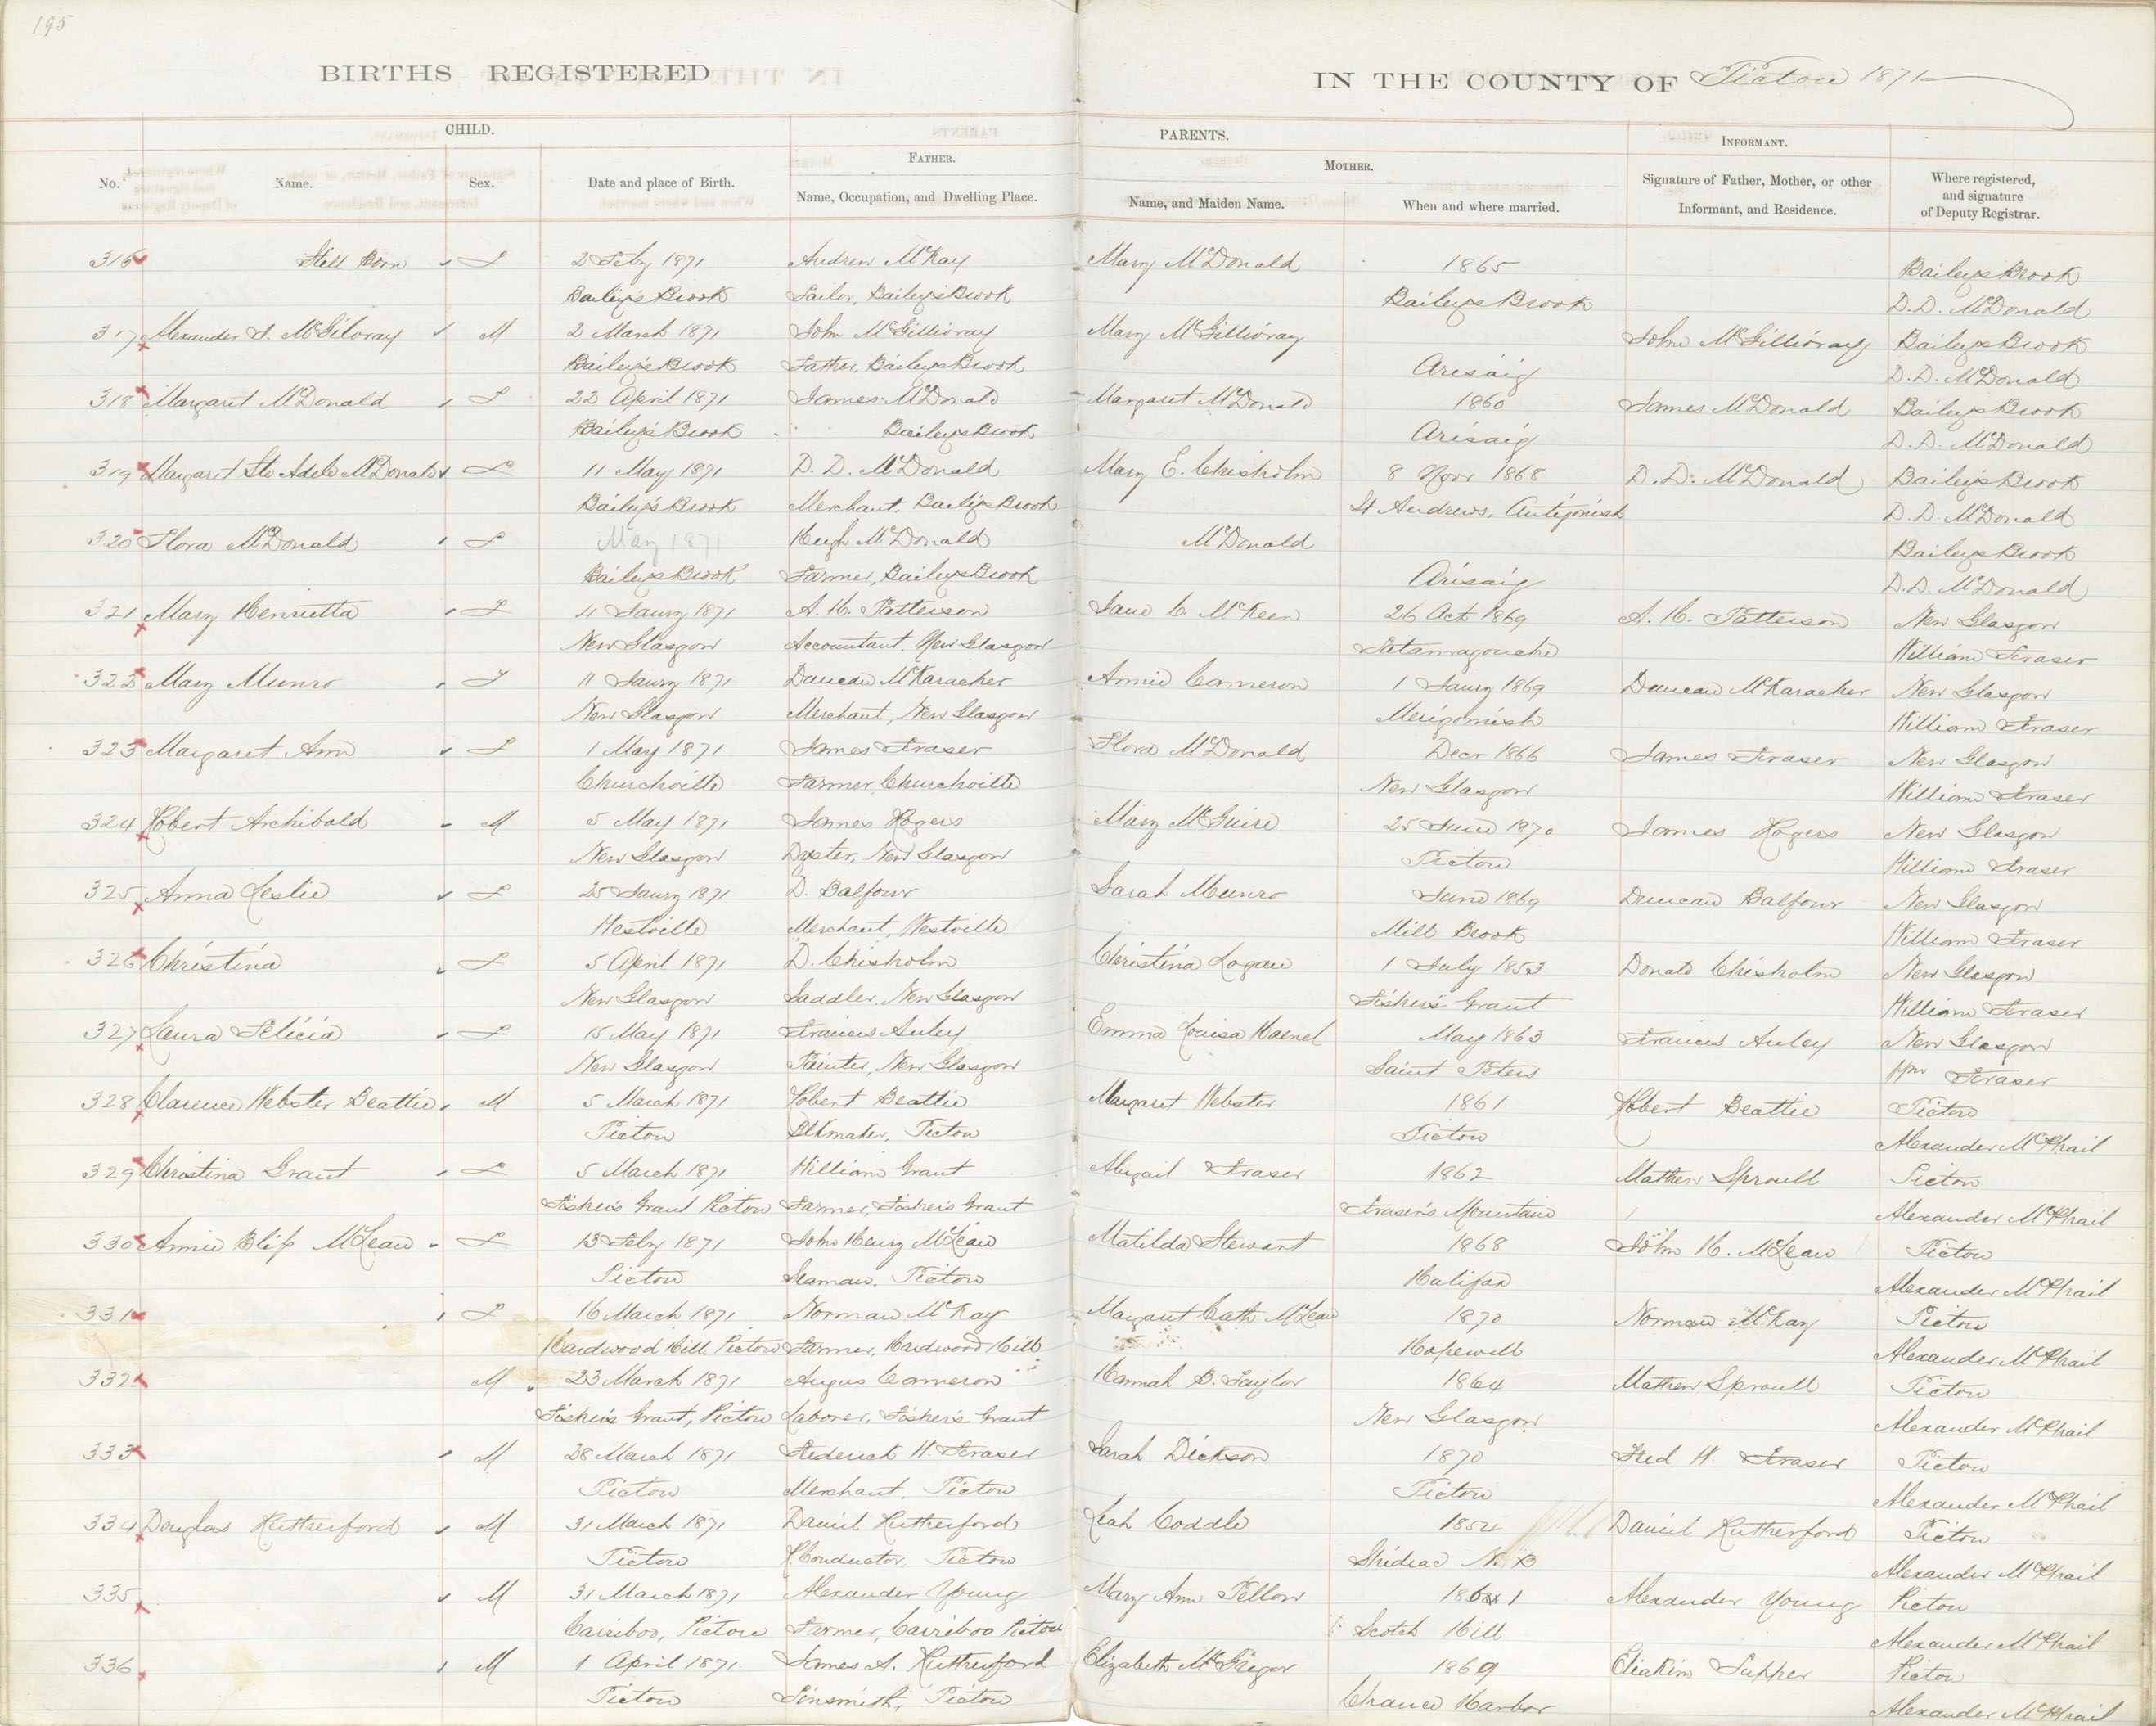 195
BIRTHS REGISTERED IN THE COUNTY OF Pictou 1871
CHILD. PARENTS. INFORMANT.
FATHER. MOTHER.
No. Name. Sex. Date and place of Birth. Name, Occupation, and Dwelling Place. Name, and Maiden Name. When and where married. Signature of Father, Mother, or other Informant, and Residence. Where registered, and signature of Deputy Registrar.
316 Still Born F 2 Feby 1871 Andrew McKay Mary McDonald 1865 Bailey's Brook
Bailey's Brook Tailor, Bailey's Brook Bailey's Brook D.D. McDonald
317 Alexander S. McGilvray M 2 March 1871 John McGillivray Mary McGillivray John McGillivray Bailey's Brook
Bailey's Brook Father, Bailey's Brook Arisaig D.D. McDonald
318 Margaret McDonald F 22 April 1871 James McDonald Margaret McDonald 1860 James McDonald Bailey's Brook
Bailey's Brook Bailey's Brook Arisaig D.D. McDonald
319 Margaret Ste Adele McDonald F 11 May 1871 D. D. McDonald Mary E. Chisholm 8 Novr 1868 D.D. McDonald Bailey's Brook
Bailey's Brook Merchant, Bailey's Brook St Andrews, Antigonish D.D. McDonald
320 Flora McDonald F May 1871 Hugh McDonald McDonald Bailey's Brook
Bailey's Brook Farmer, Bailey's Brook Arisaig D.D. McDonald
321 Mary Henrietta F 4 Jany 1871 A. H. Patterson Jane C McKeen 26 Oct 1869 A. H. Patterson New Glasgow
New Glasgow Accountant, New Glasgow Tatamagouche William Fraser
322 Mary Munro F 11 Jany 1871 Duncan McKaracher Annie Cameron 1 Jany 1869 Duncan McKaracher New Glasgow
New Glasgow Merchant, New Glasgow Merigomish William Fraser
323 Margaret Ann F 1 May 1871 James Fraser Flora McDonald Decr 1866 James Fraser New Glasgow
Churchville Farmer, Churchville New Glasgow William Fraser
324 Robert Archibald M 5 May 1871 James Rogers Mary McGuire 25 June 1870 James Rogers New Glasgow
New Glasgow Dyster, New Glasgow Pictou William Fraser
325 Anna Leslie F 25 Jany 1871 D. Balfour Sarah Munro June 1869 Duncan Balfour New Glasgow
Westville Merchant, Westville Mill Brook William Fraser
326 Christina F 5 April 1871 D. Chisholm Christina Logan 1 July 1853 Donald Chisholm New Glasgow
New Glasgow Saddler, New Glasgow Fisher's Grant William Fraser
327 Laura Felicia F 15 May 1871 Francis Auley Emma Louisa Haenel May 1863 Francis Auley New Glasgow
New Glasgow Painter, New Glasgow Saint Peters Wm Fraser
328 Clarence Webster Beattie M 5 March 1871 Robert Beattie Margaret Webster 1861 Robert Beattie Pictou
Pictou Blkmaker, Pictou Pictou Alexander McPhail
329 Christina Grant F 5 March 1871 William Grant Abigail Fraser 1862 Mathew Sproull Pictou
Fisher's Grant Pictou Farmer, Fisher's Grant Fraser's Mountain Alexander McPhail
330 Annie Bliss McLean F 13 Feby 1871 John Henry McLean Matilda Stewart 1868 John H. McLean Pictou
Pictou Seaman, Pictou Halifax Alexander McPhail
331 F 16 March 1871 Norman McKay Margaret Cath McLean 1870 Norman McKay Pictou
Hardwood Hill Pictou Farmer, Hardwood Hill Hopewell Alexander McPhail
332 M 23 March 1871 Angus Cameron Hannah B. Taylor 1864 Mathew Sproull Pictou
Fisher's Grant, Pictou Laborer, Fisher's Grant New Glasgow Alexander McPhail
333 M 28 March 1871 Frederick W. Fraser Sarah Dickson 1870 Fred W. Fraser Pictou
Pictou Merchant, Pictou Pictou Alexander McPhail
334 Douglas Rutherford M 31 March 1871 Daniel Rutherford Leah Coddle 1854 Daniel Rutherford Pictou
Pictou R Conductor, Pictou Shediac N. B Alexander McPhail
335 M 31 March 1871 Alexander Young Mary Ann Fellow 1861 Alexander Young Pictou
Cariboo, Pictou Farmer, Cariboo Pictou Scotch Hill Alexander McPhail
336 M 1 April 1871 James A. Rutherford Elizabeth McGregor 1869 Eliakim Tupper Pictou
Pictou Tinsmith, Pictou Chance Harbor Alexander McPhail